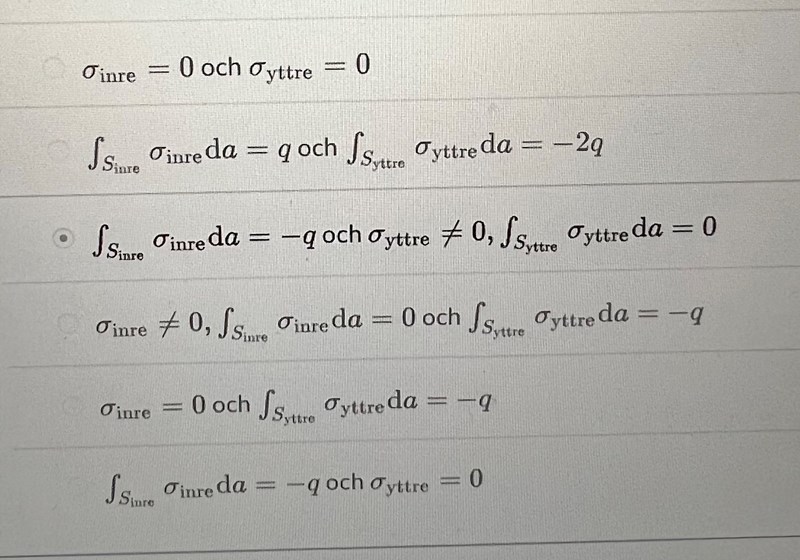 σ_inre = 0 och σ_yttre = 0
∫_{S_inre} σ_inre da = q och ∫_{S_yttre} σ_yttre da = −2q
∫_{S_inre} σ_inre da = −q och σ_yttre ≠ 0, ∫_{S_yttre} σ_yttre da = 0
σ_inre ≠ 0, ∫_{S_inre} σ_inre da = 0 och ∫_{S_yttre} σ_yttre da = −q
σ_inre = 0 och ∫_{S_yttre} σ_yttre da = −q
∫_{S_inre} σ_inre da = −q och σ_yttre = 0